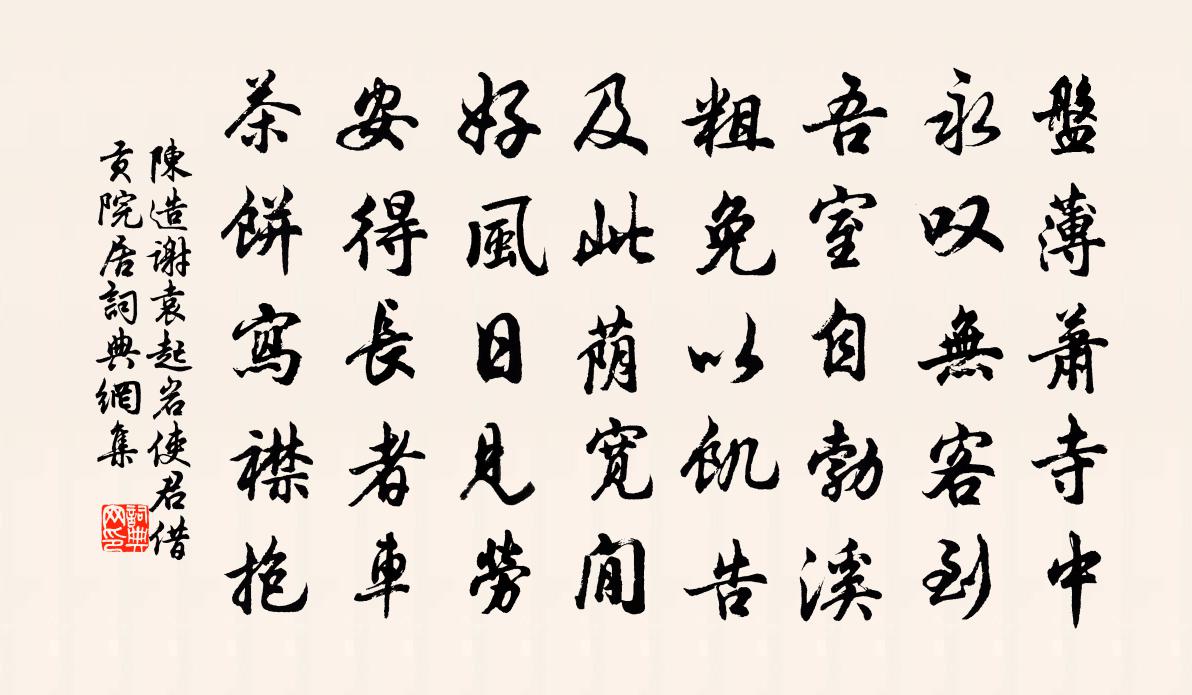 盤薄蕭寺中
永叹無客到
吾室自勃溪
粗免以飢告
及此荫寬閒
好風日見勞
安得長者車
茶餅寫襟抱
陳造謝袁起岩使君借
貢院居詞典網集
詞典网印